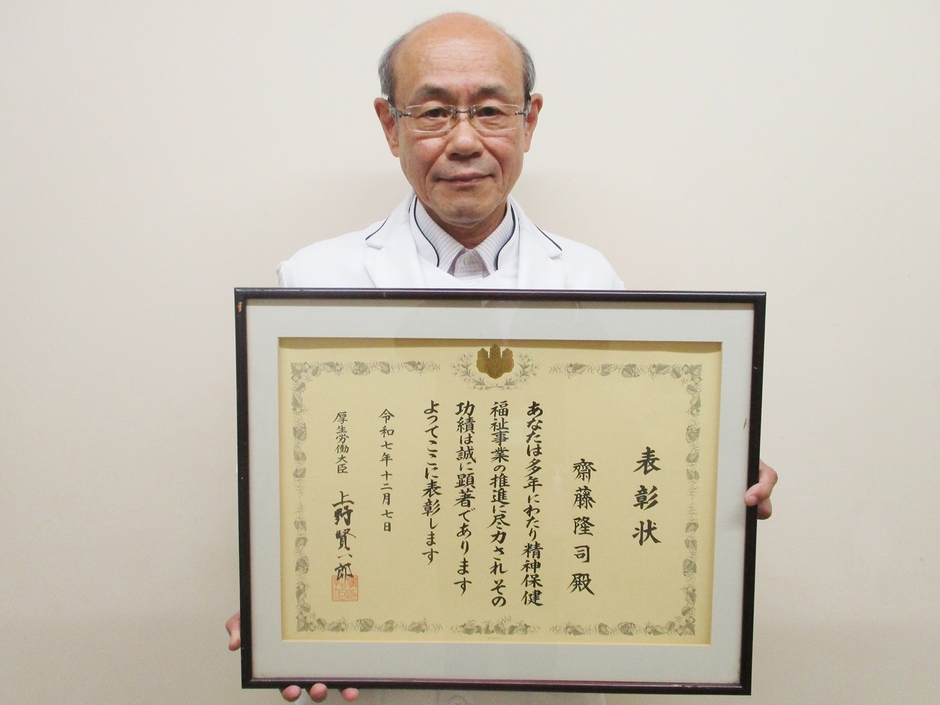 表彰状
齋藤隆司殿
あなたは多年にわたり精神保健
福祉事業の推進に尽力されその
功績は誠に顕著であります
よってここに表彰します
令和七年十二月七日
厚生労働大臣 上野賢一郎